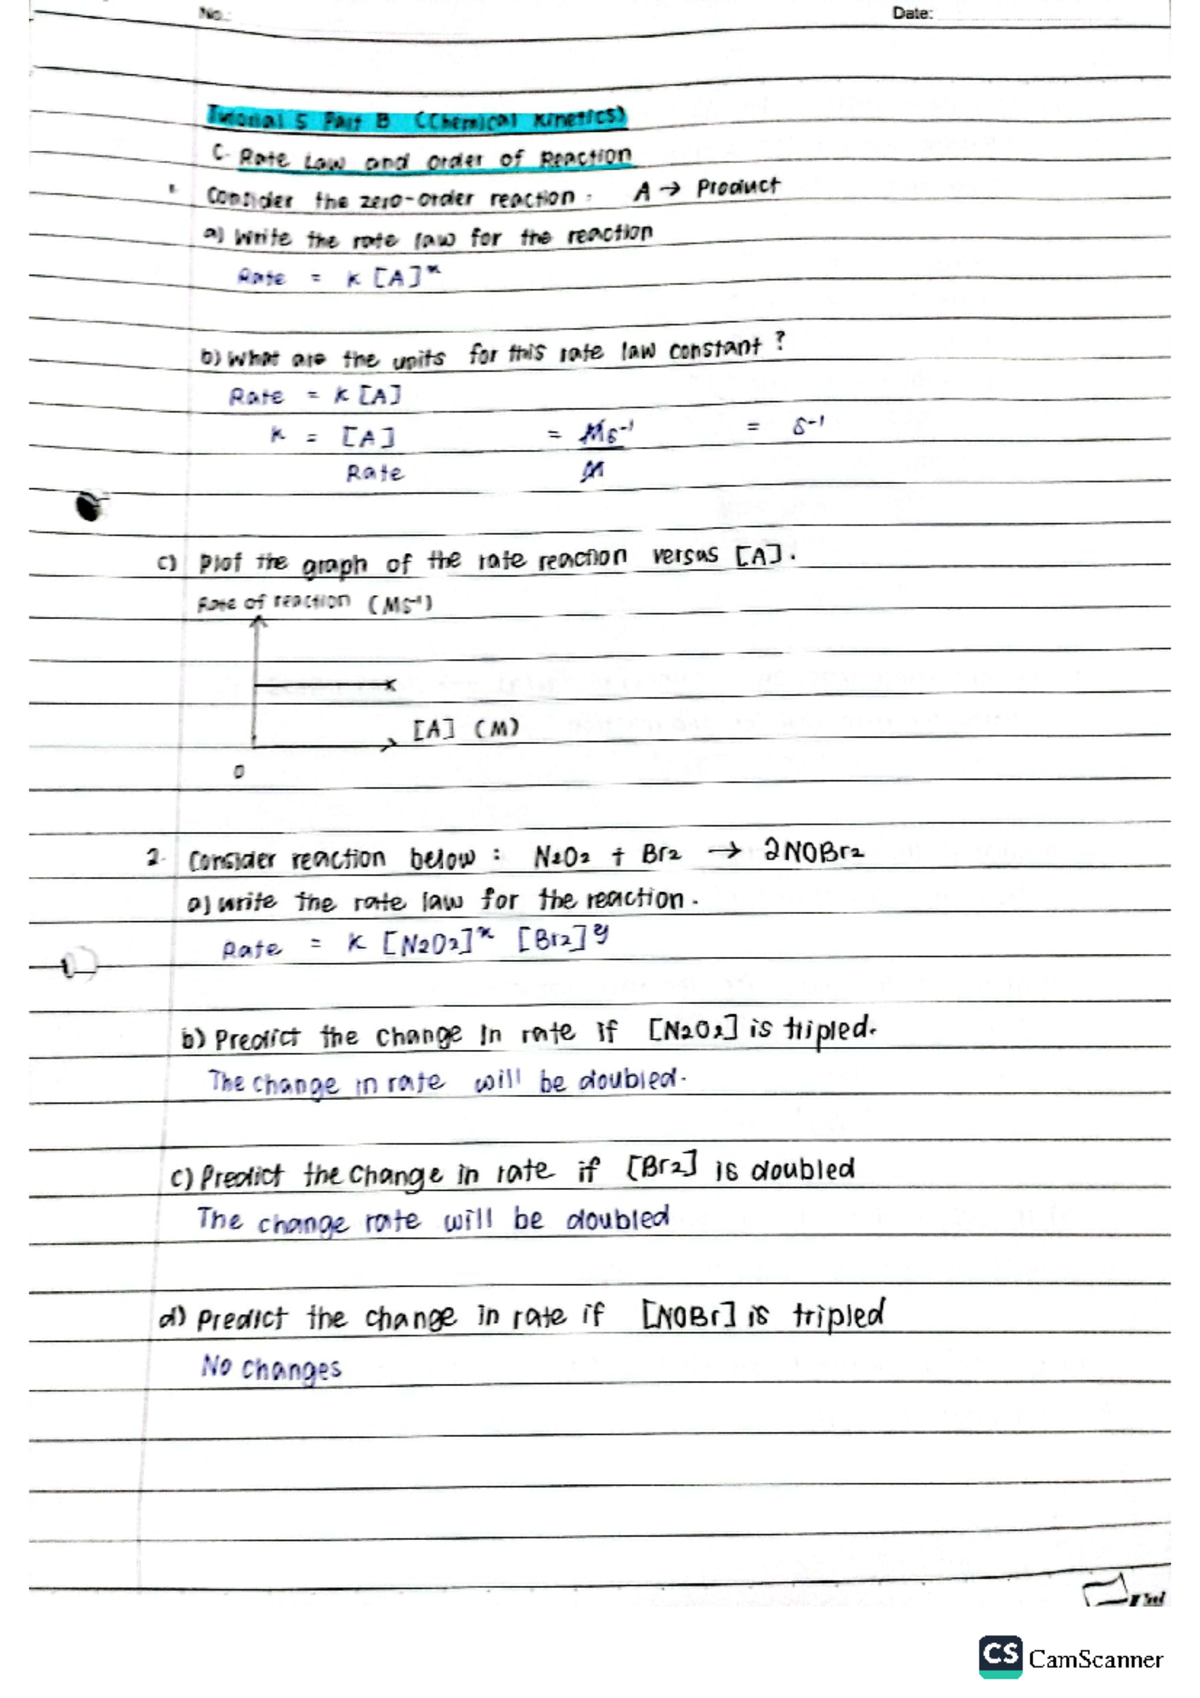 No.: Date:
Tutorial 5 Part B (Chemical Kinetics)
C. Rate Law and Order of Reaction
1. Consider the zero-order reaction : A → Product
a) Write the rate law for the reaction
Rate = k [A]ˣ
b) What are the units for this rate law constant ?
Rate = k [A]
k = [A] = Ms⁻¹ = s⁻¹
Rate M
c) Plot the graph of the rate reaction versus [A].
Rate of reaction (Ms⁻¹)
[A] (M)
0
2. Consider reaction below : N2O2 + Br2 → 2NOBr2
a) Write the rate law for the reaction.
Rate = k [N2O2]ˣ [Br2]ʸ
b) Predict the change in rate if [N2O2] is tripled.
The change in rate will be doubled.
c) Predict the change in rate if [Br2] is doubled
The change rate will be doubled
d) Predict the change in rate if [NOBr] is tripled
No changes
CS CamScanner